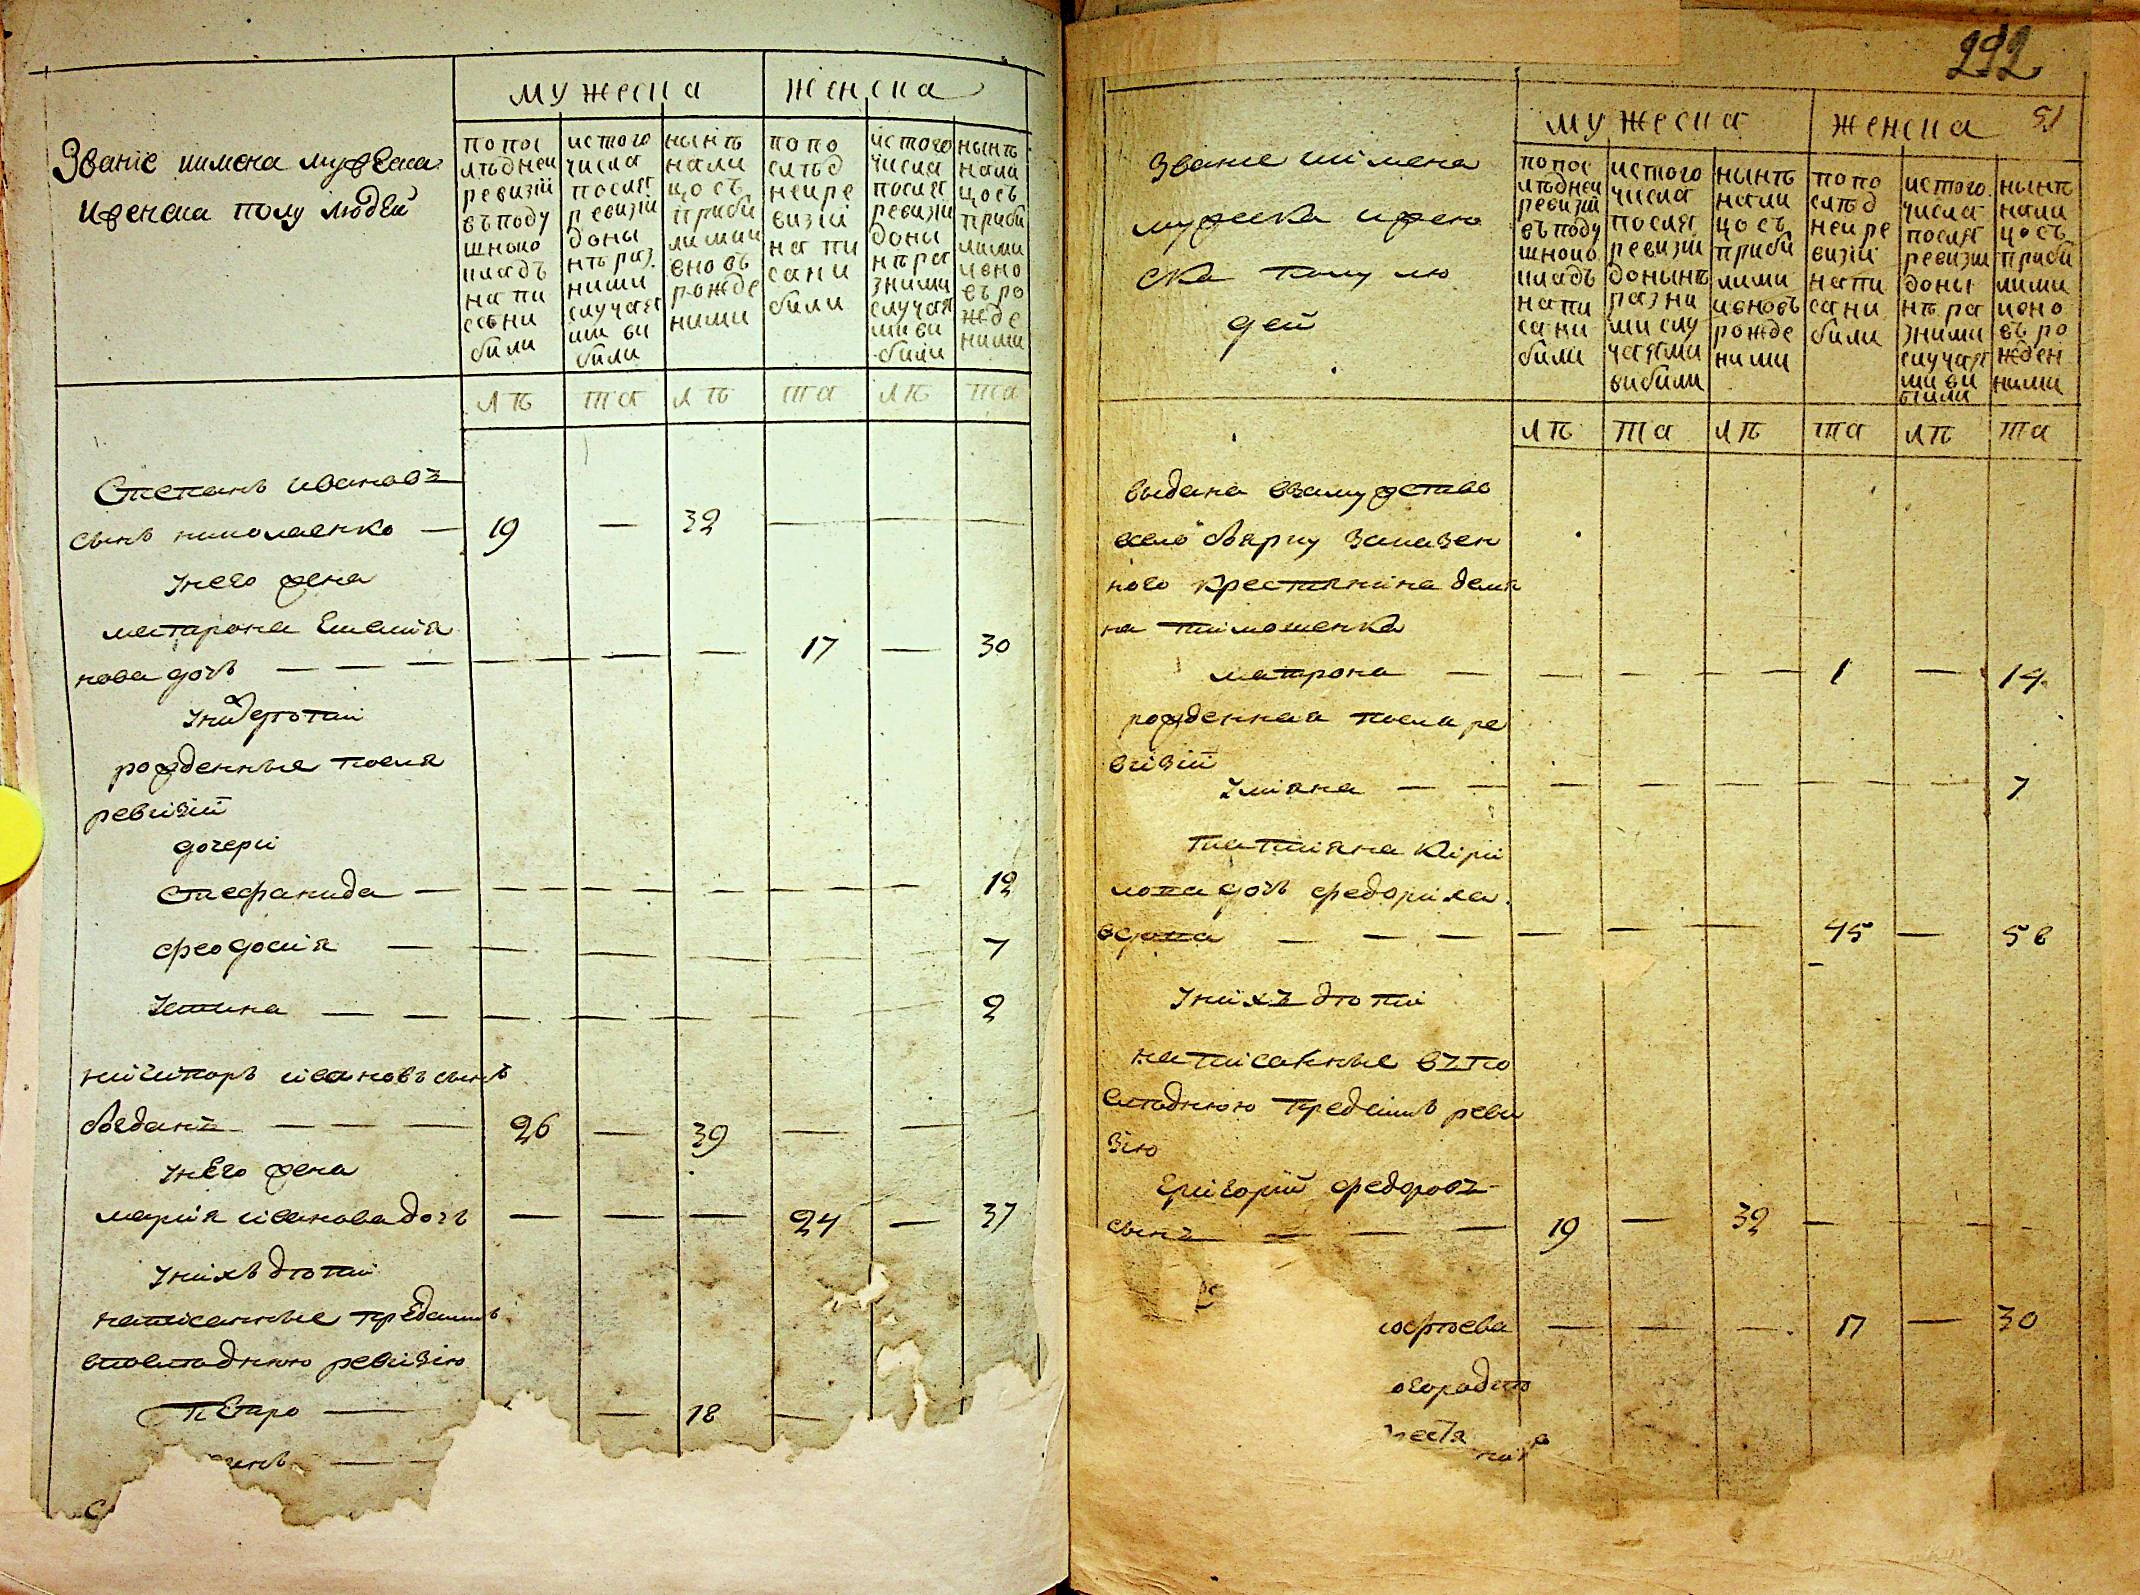 Званіе иимена мужеска
ижен­ска полу людей
мужеска
женска
попос
лѣдней
ревизіи
въподу
шной
окладъ
напи
сани
били
истого
числа
послѣ
ревизіи
доны
нѣ раз
ними
случая
ми ви
били
нынѣ
нали
цо съ
приби
лими
вновъ
рожде
ними
попо
слѣд
ней ре
визіи
напи
сани
били
истого
числа
послѣ
ревизіи
доны
нѣ ра
зними
случая
ми ви
били
нынѣ
нали
цо съ
приби
лими
ивно
въ ро
жде
ними
лѣ та лѣ та лѣ та
Степанъ ивановъ
сынъ николаенко — 19 — 32
унего жена
матарона
нова дочъ — 17 — 30
унихъ дѣти
рожденные посля
ревизіи
дочери
стефанида — 12
феодосія — 7
устина — 2
ничипоръ ивановъ сынъ
богданъ — 26 — 39
унего жена
марія иванова дочъ — 24 — 37
унихъ дѣти
написанные предъимъ
впослѣднюю ревизію
Петро — 18
292
51
Званіе иимена
мужеска ижен
ска полу лю
дей
мужеска
женска
попос
лѣдней
ревизіи
въподу
шной
окладъ
напи
сани
били
истого
числа
послѣ
ревизіи
донынѣ
разни
ми слу
чаями
вибили
нынѣ
нали
цо съ
приби
лими
ивновъ
рожде
ними
попо
слѣд
ней ре
визіи
напи
сани
били
истого
числа
послѣ
ревизіи
доны
нѣ ра
зними
случая
ми ви
били
нынѣ
нали
цо съ
приби
лими
ивно
въ ро
жден
ними
лѣ та лѣ та лѣ та
выдана взамужство
село боярку заказен
ного крестянина демя
на тимошенка
матрона — 1 — 14
рожденная посля ре
визіи
уліяна — 7
татіяна кири
лова дочъ федориха
вдова — 45 — 58
унихъ дѣти
написанные въпо
слѣднюю предъимъ реви
зію
григорій федоровъ
сынъ — 19 — 32
17 — 30